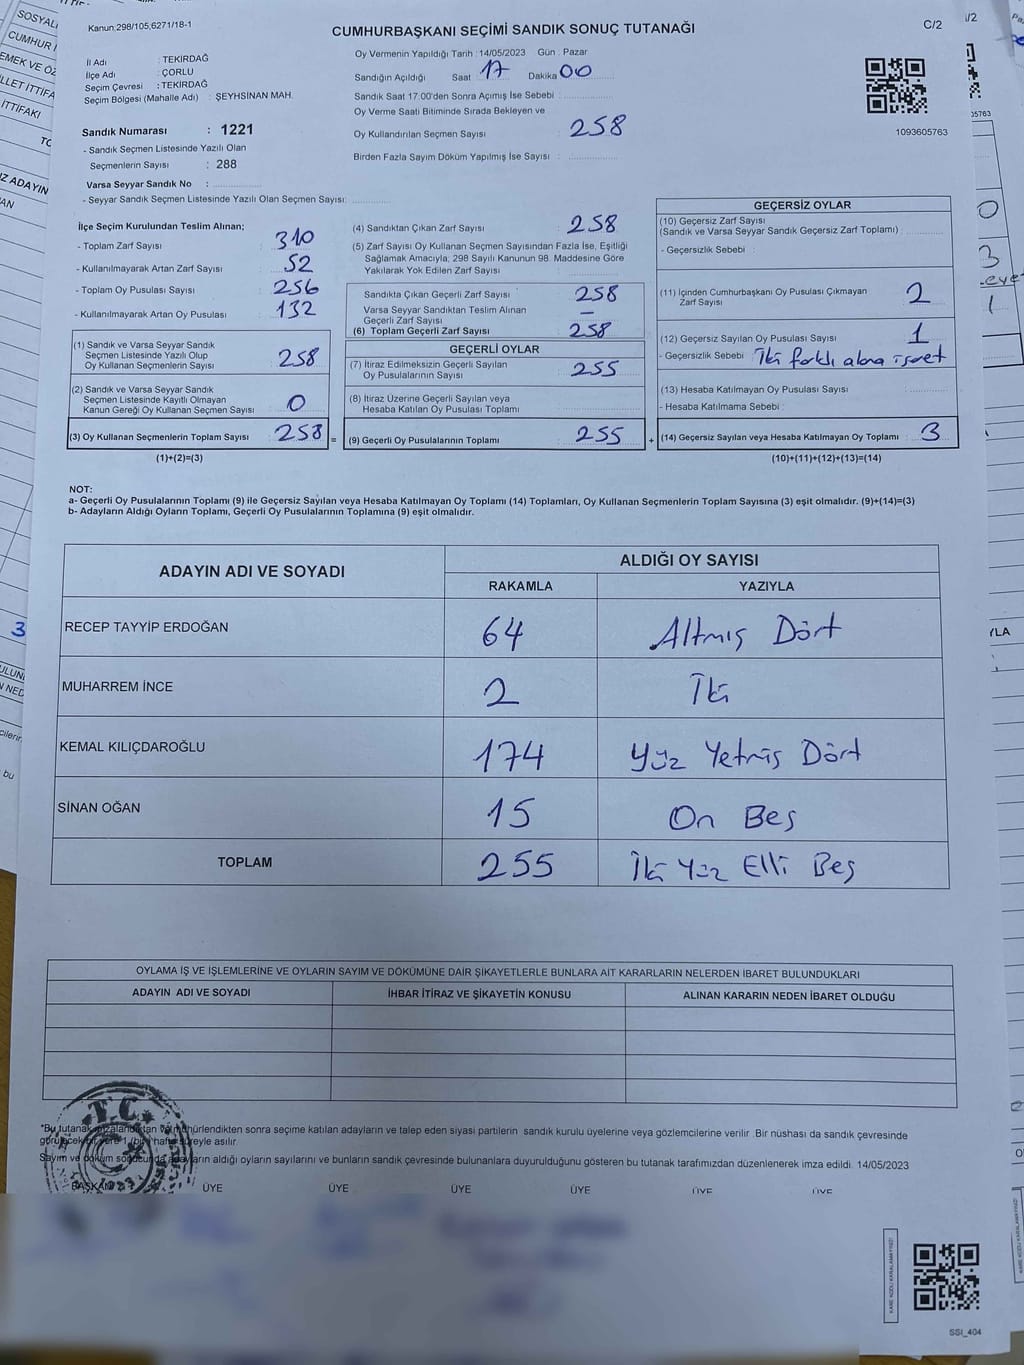 Kanun:298/105,6271/18-1
CUMHURBAŞKANI SEÇİMİ SANDIK SONUÇ TUTANAĞI
C/2
İl Adı : TEKİRDAĞ
İlçe Adı : ÇORLU
Seçim Çevresi : TEKİRDAĞ
Seçim Bölgesi (Mahalle Adı) : ŞEYHSİNAN MAH.
Sandık Numarası : 1221
- Sandık Seçmen Listesinde Yazılı Olan
Seçmenlerin Sayısı : 288
Varsa Seyyar Sandık No :
- Seyyar Sandık Seçmen Listesinde Yazılı Olan Seçmen Sayısı:
Oy Vermenin Yapıldığı Tarih : 14/05/2023 Gün : Pazar
Sandığın Açıldığı Saat 17 Dakika 00
Sandık Saat 17:00'den Sonra Açımış İse Sebebi
Oy Verme Saati Bitiminde Sırada Bekleyen ve
Oy Kullandırılan Seçmen Sayısı 258
Birden Fazla Sayım Döküm Yapılmış İse Sayısı :
1093605763
İlçe Seçim Kurulundan Teslim Alınan;
- Toplam Zarf Sayısı 310
- Kullanılmayarak Artan Zarf Sayısı 52
- Toplam Oy Pusulası Sayısı 256
- Kullanılmayarak Artan Oy Pusulası 132
(1) Sandık ve Varsa Seyyar Sandık
Seçmen Listesinde Yazılı Olup
Oy Kullanan Seçmenlerin Sayısı 258
(2) Sandık ve Varsa Seyyar Sandık
Seçmen Listesinde Kayıtlı Olmayan
Kanun Gereği Oy Kullanan Seçmen Sayısı 0
(3) Oy Kullanan Seçmenlerin Toplam Sayısı 258 =
(1)+(2)=(3)
(4) Sandıktan Çıkan Zarf Sayısı 258
(5) Zarf Sayısı Oy Kullanan Seçmen Sayısından Fazla İse, Eşitliği
Sağlamak Amacıyla; 298 Sayılı Kanunun 98. Maddesine Göre
Yakılarak Yok Edilen Zarf Sayısı
Sandıkta Çıkan Geçerli Zarf Sayısı : 258
Varsa Seyyar Sandıktan Teslim Alınan
Geçerli Zarf Sayısı –
(6) Toplam Geçerli Zarf Sayısı 258
GEÇERLİ OYLAR
(7) İtiraz Edilmeksizin Geçerli Sayılan
Oy Pusulalarının Sayısı 255
(8) İtiraz Üzerine Geçerli Sayılan veya
Hesaba Katılan Oy Pusulası Toplamı
(9) Geçerli Oy Pusulalarının Toplamı 255 +
GEÇERSİZ OYLAR
(10) Geçersiz Zarf Sayısı
(Sandık ve Varsa Seyyar Sandık Geçersiz Zarf Toplamı)
- Geçersizlik Sebebi :
(11) İçinden Cumhurbaşkanı Oy Pusulası Çıkmayan
Zarf Sayısı 2
(12) Geçersiz Sayılan Oy Pusulası Sayısı 1
- Geçersizlik Sebebi : İki farklı alana işaret
(13) Hesaba Katılmayan Oy Pusulası Sayısı
- Hesaba Katılmama Sebebi :
(14) Geçersiz Sayılan veya Hesaba Katılmayan Oy Toplamı : 3
(10)+(11)+(12)+(13)=(14)
NOT:
a- Geçerli Oy Pusulalarının Toplamı (9) ile Geçersiz Sayılan veya Hesaba Katılmayan Oy Toplamı (14) Toplamları, Oy Kullanan Seçmenlerin Toplam Sayısına (3) eşit olmalıdır. (9)+(14)=(3)
b- Adayların Aldığı Oyların Toplamı, Geçerli Oy Pusulalarının Toplamına (9) eşit olmalıdır.
ADAYIN ADI VE SOYADI
ALDIĞI OY SAYISI
RAKAMLA YAZIYLA
RECEP TAYYİP ERDOĞAN 64 Altmış Dört
MUHARREM İNCE 2 İki
KEMAL KILIÇDAROĞLU 174 Yüz Yetmiş Dört
SİNAN OĞAN 15 On Beş
TOPLAM 255 İki Yüz Elli Beş
OYLAMA İŞ VE İŞLEMLERİNE VE OYLARIN SAYIM VE DÖKÜMÜNE DAİR ŞİKAYETLERLE BUNLARA AİT KARARLARIN NELERDEN İBARET BULUNDUKLARI
ADAYIN ADI VE SOYADI İHBAR İTİRAZ VE ŞİKAYETİN KONUSU ALINAN KARARIN NEDEN İBARET OLDUĞU
T.C.
*Bu tutanak imzalandıktan ve mühürlendikten sonra seçime katılan adayların ve talep eden siyasi partilerin sandık kurulu üyelerine veya gözlemcilerine verilir. Bir nüshası da sandık çevresinde
görülecek bir yere 1 (bir) hafta süreyle asılır.
Sayım ve döküm sonucunda adayların aldığı oyların sayılarını ve bunların sandık çevresinde bulunanlara duyurulduğunu gösteren bu tutanak tarafımızdan düzenlenerek imza edildi. 14/05/2023
BAŞKAN ÜYE ÜYE ÜYE ÜYE ÜYE ÜYE
KARE KODU KARALAMAYINIZ!
SSİ_404